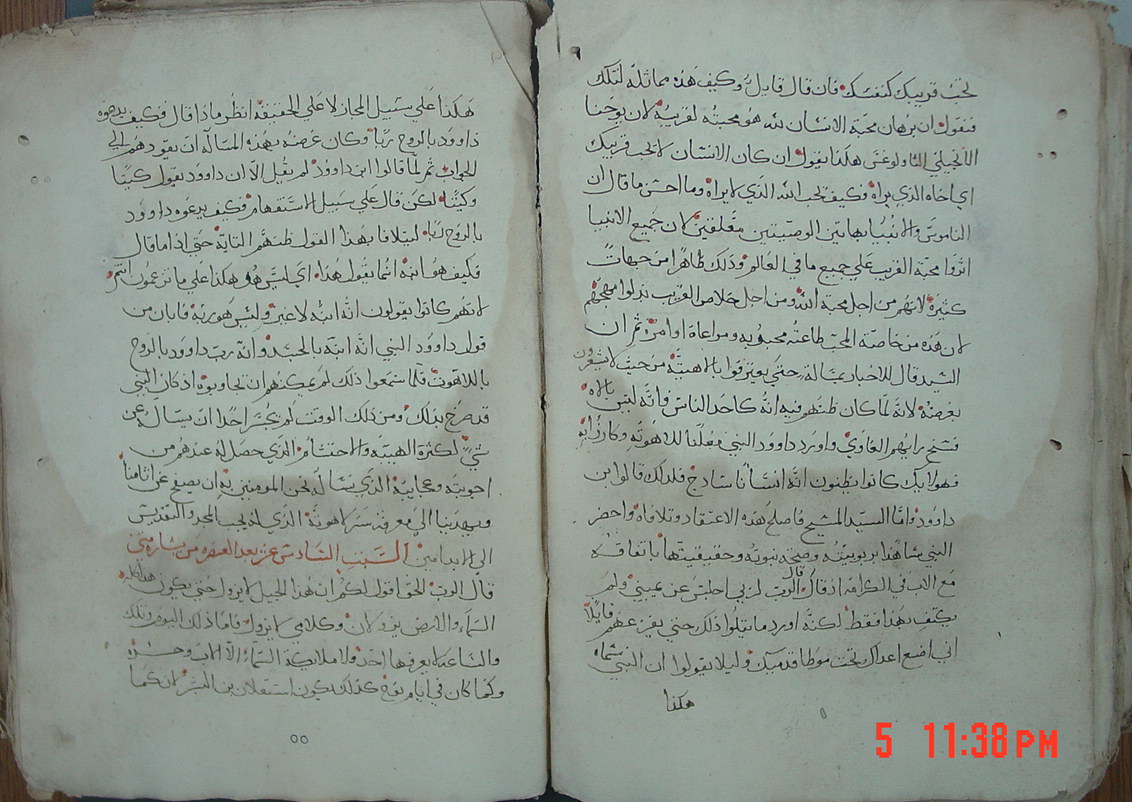 تحب قريبك كنفسك فان قال قايل وكيف هذه مماثله لتلك
فنقول ان برهان محبة الانسان لله هو محبته لقريبه لان يوحنا
الانجيلي هكذا يقول ان كان الانسان لا يحب قريبك
اي اخاه الذي يراه فكيف يحب الله الذي لا يراه وما احسن ما قال ان
الناموس والانبيا بهاتين الوصيتين معلقين لان جميع الانبيا
اثروا محبة القريب علي جميع ما في العالم وذلك ظاهرا من جهات
كثيره لانهم من اجل محبة الله ومن اجل خلاص القريب بذلوا مهجهم
لان هذه من خاصة المحب طاعته محبوبه ومراعاة اوامره ثم ان
السيد قال للاحبار مسالة حتي يعترفوا بالاهيته من حيث لا يشعرون
بغرضه لانه لما كان ظنهم فيه انه كاحد الناس وانه ليس بالاه
فسخ رايهم الغاوي واورد داوود النبي معلنا للاهوته وكارزا به
فهولايك كانوا يظنون انه انسانا ساذج فلذلك قالوا ابن
داوود واما السيد المسيح فاصلح هذه الاعتقاد وتلافاه واحضر
النبي شاهدا بربوبيته وصحة بنوته وحقيقيتها باتفاقه
مع الاب في الكرامه اذ قال قال الرب لربي اجلس عن يميني ولم
يكتف بهذا فقط لكنه اورد ما يتلوا ذلك حتي يفزعهم قايلا
اني اضع اعداك تحت موطا قدميك وليلا يقولوا ان النبي سماه
هكذا
هكذا علي سبيل المجاز لا علي الحقيقه انظر ماذا قال فكيف يدعوه
داوود بالروح ربا وكان غرضه بهذه المسالة ان يقودهم الي
الجواب ثم لما قالوا ابن داوود لم يقل الا ان داوود يقول كيتا
وكيتا لكن قال علي سبيل الاستفهام فكيف يدعوه داوود
بالروح ربا ليتلافا بهذا القول ظنهم التايه حتي اذا ما قال
فكيف هو ابنه انما يقول هذا اي ليس هو هكذا علي ما تزعمون انتم
لانهم كانوا يقولون انه ابنه لا غير وليس هو ربه فابان من
قول داوود النبي انه ابنه بالجسد وانه رب داوود بالروح
باللاهوت فلما سمعوا ذلك لم يمكنهم ان يجاوبوه اذ كان النبي
قد صرح بذلك ومن ذلك الوقت لم يجسر احدا ان يساله عن
شي لكثرة الهيبه والاحتشام الذي حصل له عندهم من
اجوبته وعجايبه الذي نساله نحن المومنين به ان يصفح عن اثامنا
ويهدينا الي معرفة سر لاهوته الذي له يجب المجد والتقديس
الي الابد امين السبت السادس عشر بعد العنصره من بشارة متي
قال الرب الحق اقول لكم ان هذا الجيل لا يزول حتي يكون هذا كله
السماء والارض يزولان وكلامي لا يزول فاما ذلك اليوم وتلك
والساعه لا يعرفها احد ولا ملايكة السماء الا الاب وحده
وكما كان في ايام نوح كذلك يكون استعلان ابن البشر ان كما
5 11:38 PM